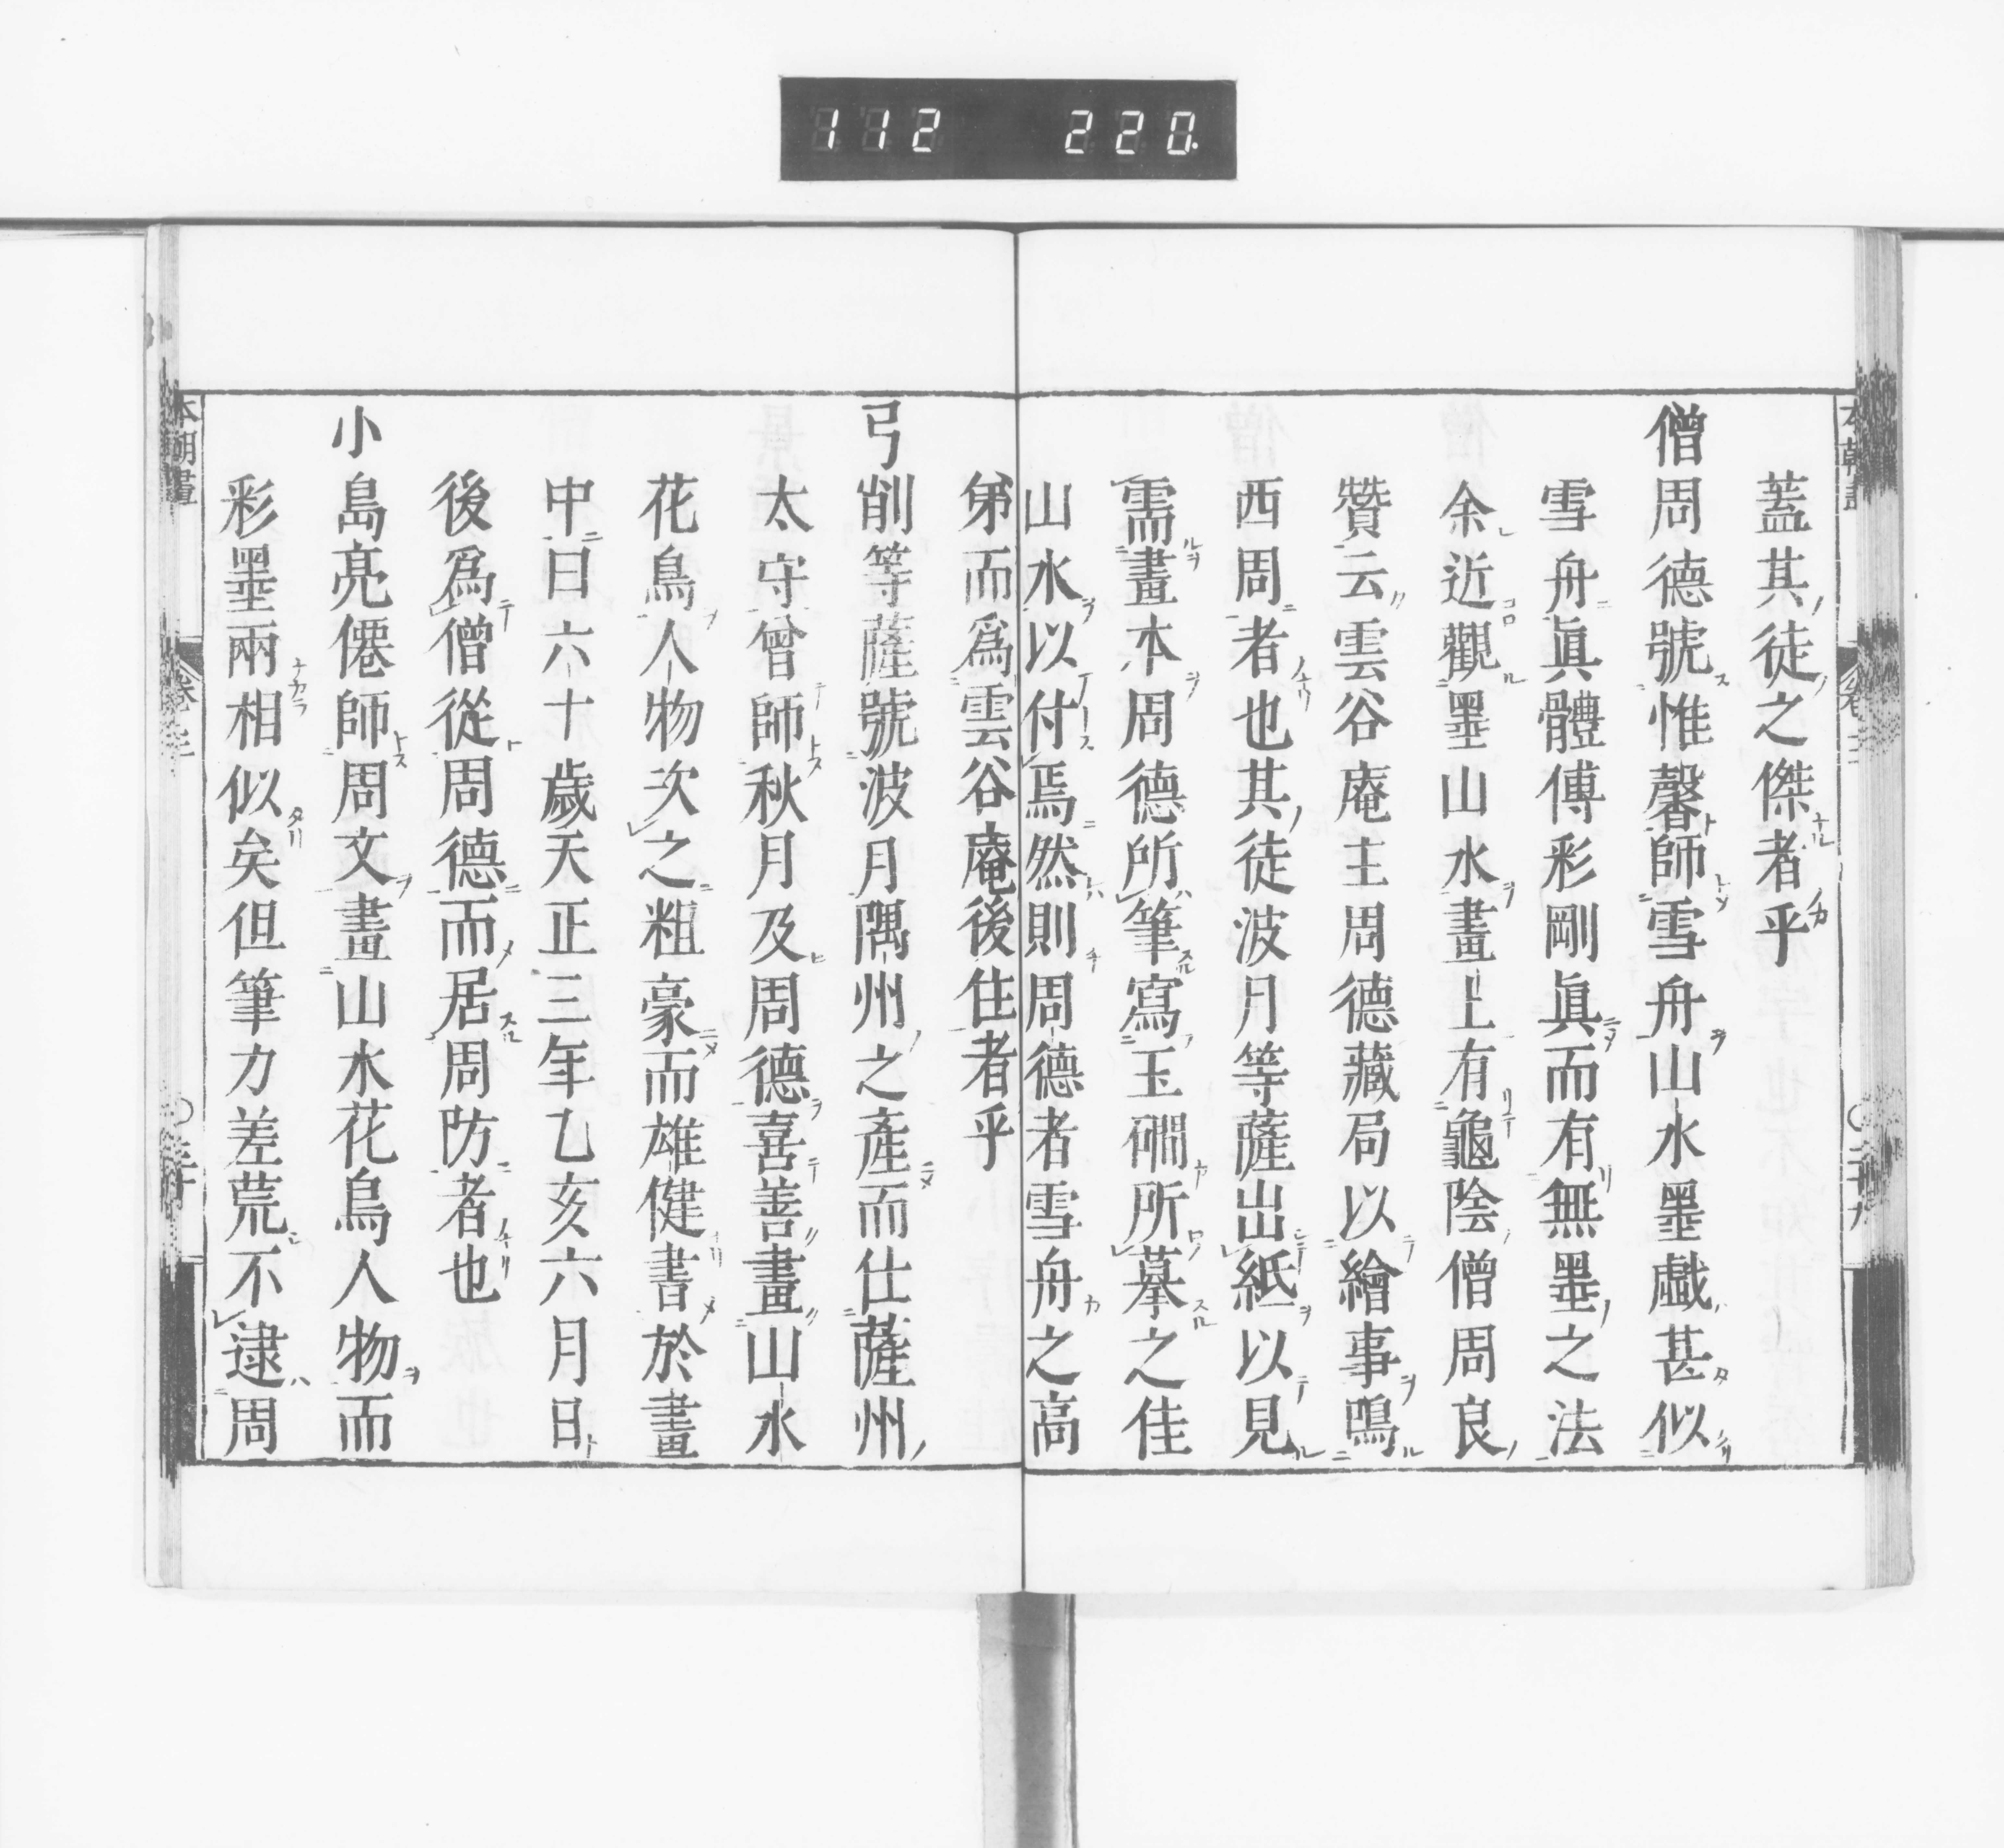 112 220
蓋其徒之傑者乎
僧周德號惟馨師雪舟山水墨戲甚似
雪舟眞體傅彩剛眞而有無墨之法
余近觀墨山水畫上有龜陰僧周良
贊云雲谷庵主周德藏局以繪事鳴
西周者也其徒波月等薩出紙以見
需畫本周德所筆寫玉磵所摹之佳
山水以付焉然則周德者雪舟之高
弟而爲雲谷庵後住者乎
弓削等薩號波月隅州之產而仕薩州
太守曾師秋月及周德喜善畫山水
花鳥人物次之粗豪而雄健書於畫
中曰六十歲天正三年乙亥六月日
後爲僧從周德而居周防者也
小島亮僊師周文畫山水花鳥人物而
彩墨兩相似矣但筆力差荒不逮周
本朝畫 卷三